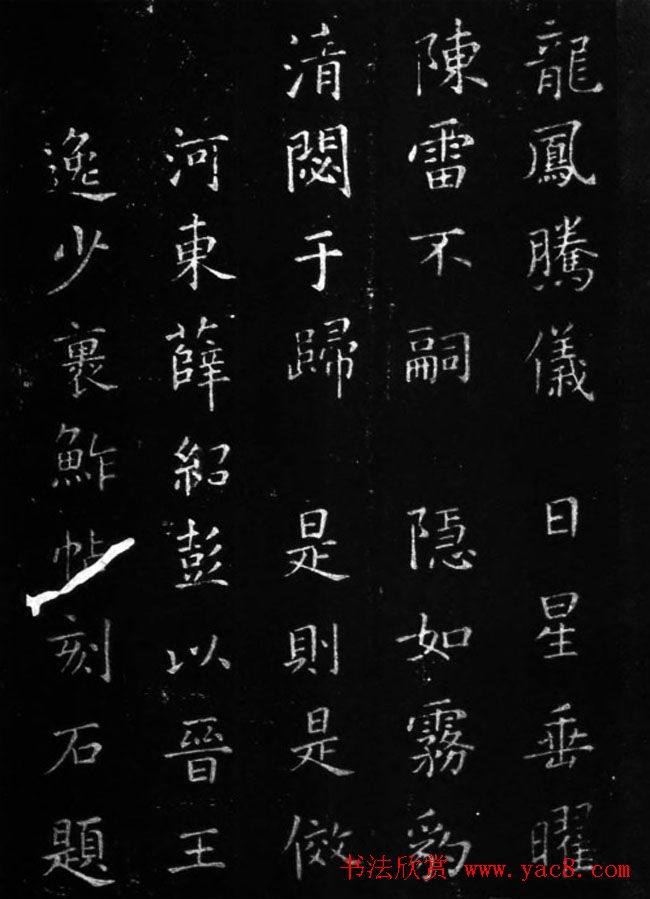 龍鳳騰儀 日星垂曜
陳雷不嗣 隱如霧豹
清閟于歸 是則是傚
河東薛紹彭以晉王
逸少裹鮓帖刻石題
书法欣赏 www.yac8.com